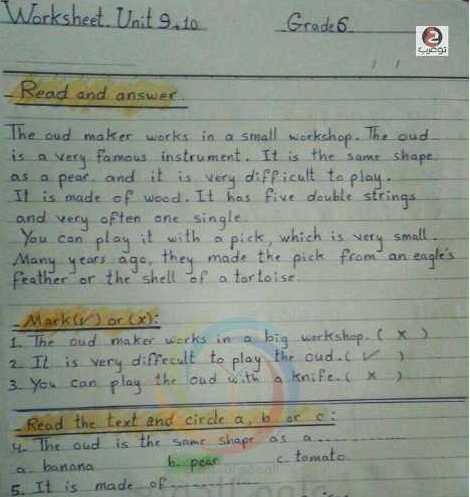 Worksheet. Unit 9+10
Grade 6
2
توعرب
/ /
- Read and answer.
The oud maker works in a small workshop. The oud
is a very famous instrument. It is the same shape
as a pear and it is very difficult to play.
It is made of wood. It has five double strings
and very often one single.
You can play it with a pick, which is very small.
Many years ago, they made the pick from an eagle's
feather or the shell of a tortoise.
- Mark (✓) or (x):
1. The oud maker works in a big workshop. ( x )
2. It is very diffecult to play the oud. ( ✓ )
3. You can play the oud with a knife. ( x )
- Read the text and circle a, b or c:
4. The oud is the same shape as a ..............
a. banana b. pear c. tomato
5. It is made of ..............